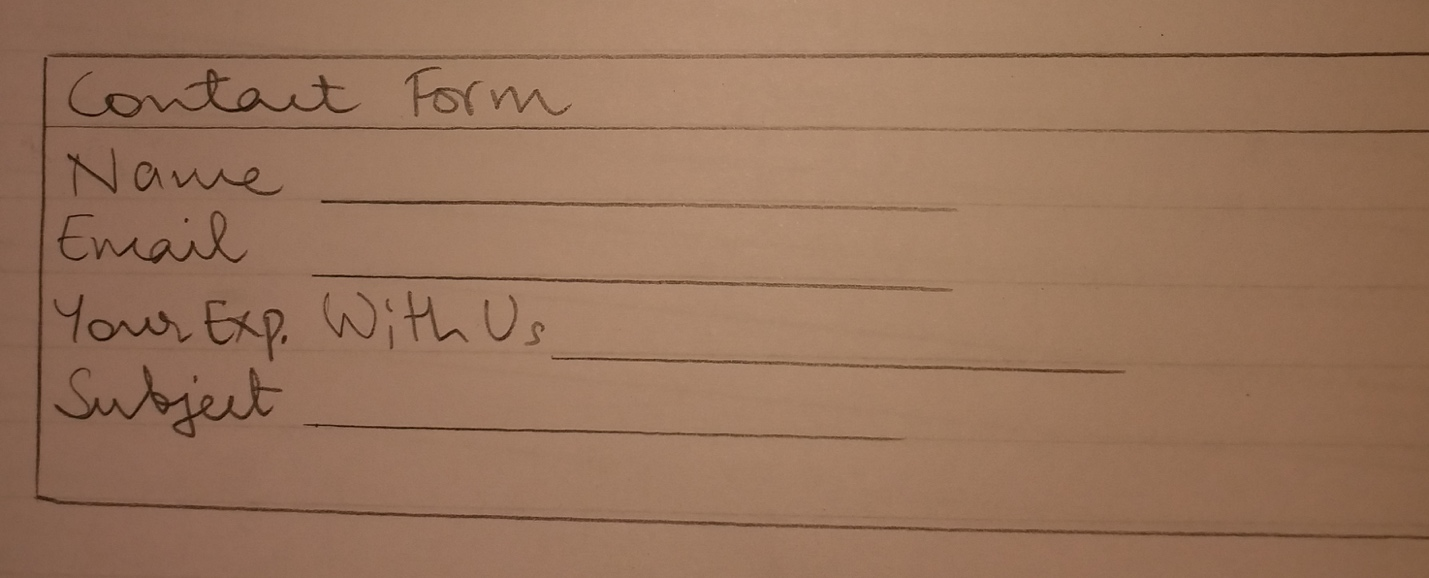 Contact Form
Name
Email
Your Exp. With Us
Subject